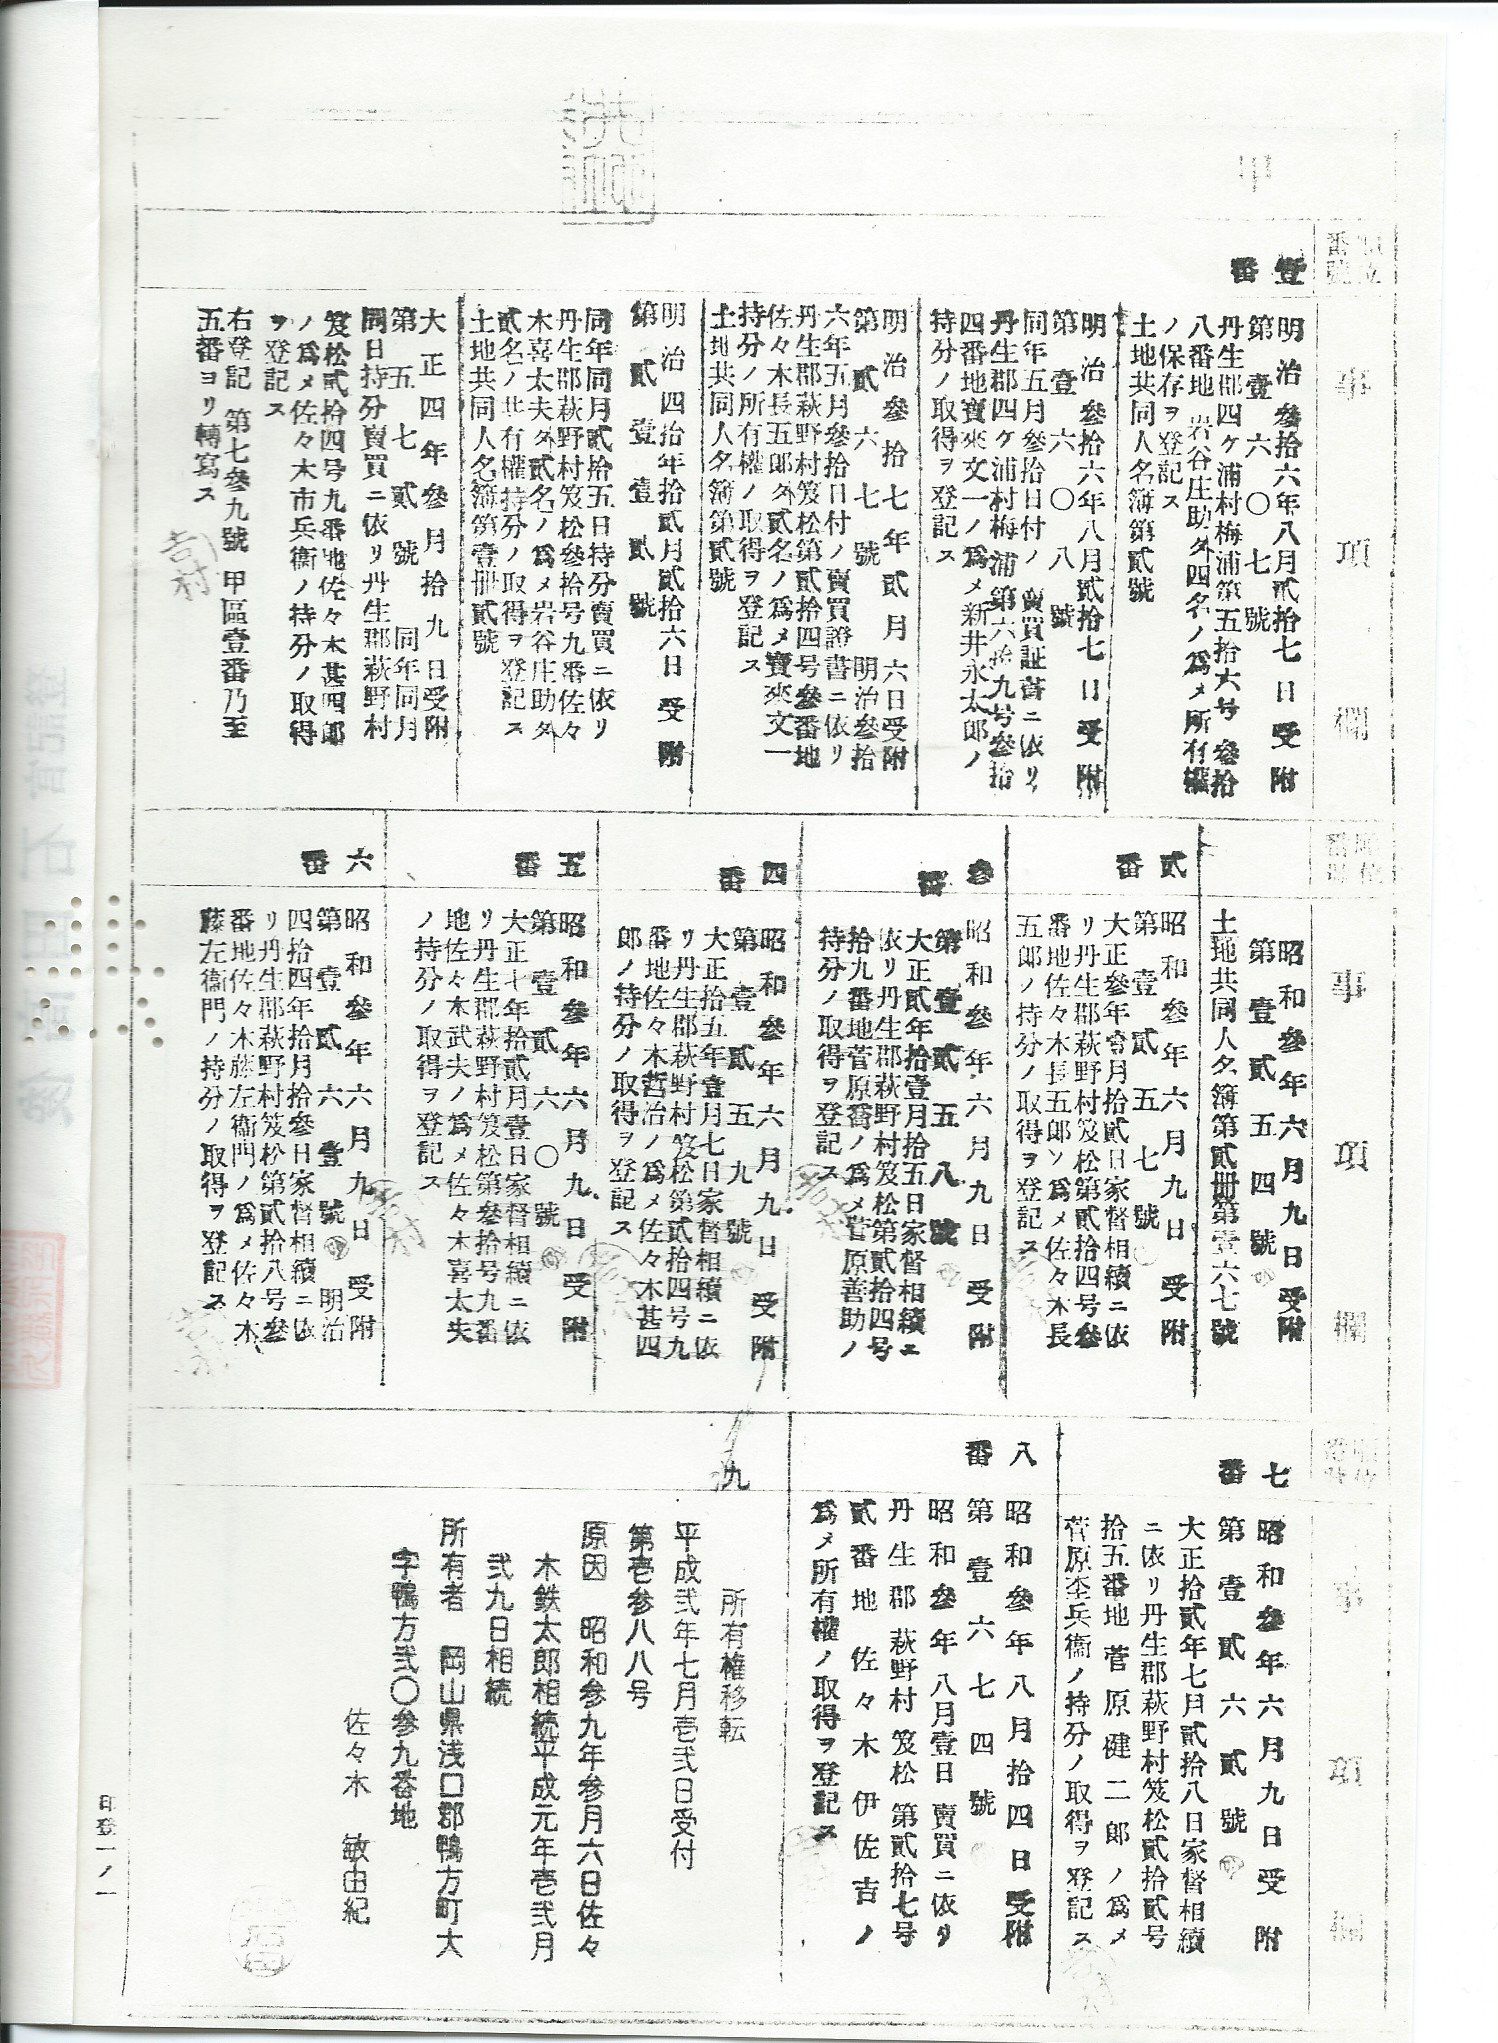 甲
事項欄
壹番
明治參拾六年八月貳拾七日受附
第壹六〇七號
丹生郡四ケ浦村梅浦第五拾六号參拾
八番地 岩谷庄助外四名ノ爲メ所有權
ノ保存ヲ登記ス
土地共同人名簿第貳號
明治參拾六年八月貳拾七日受附
第壹六〇八號
同年五月參拾日付ノ賣買証書ニ依リ
丹生郡四ケ浦村梅浦第六拾九号參拾
四番地寶來文一ノ爲メ新井永太郎ノ
持分ノ取得ヲ登記ス
明治參拾七年貳月六日受附
第貳六七號 明治參拾
六年五月參拾日付ノ賣買證書ニ依リ
丹生郡萩野村笈松第貳拾四号參番地
佐々木長五郎外貳名ノ爲メ寶來文一
持分ノ所有權ノ取得ヲ登記ス
土地共同人名簿第貳號
明治四拾年拾貳月貳拾六日受附
第貳壹壹貳號
同年同月貳拾五日持分賣買ニ依リ
丹生郡萩野村笈松參拾号九番佐々
木喜太夫外貳名ノ爲メ岩谷庄助外
貳名ノ共有權持分ノ取得ヲ登記ス
土地共同人名簿第壹冊貳號
大正四年參月拾九日受附
第五七貳號 同年同月
同日持分賣買ニ依リ丹生郡萩野村
笈松貳拾四号九番地佐々木甚四郎
ノ爲メ佐々木市兵衞ノ持分ノ取得
ヲ登記ス
右登記 第七參九號 甲區壹番乃至
五番ヨリ轉寫ス
吉村
事項欄
昭和參年六月九日受附
第壹貳五四號
土地共同人名簿第貳冊第壹六七號
貳番
昭和參年六月九日受附
第壹貳五七號
大正參年壹月拾貳日家督相續ニ依
リ丹生郡萩野村笈松第貳拾四号參
番地佐々木長五郎ノ爲メ佐々木長
五郎ノ持分ノ取得ヲ登記ス
參番
昭和參年六月九日受附
第壹貳五八號
大正貳年拾壹月拾五日家督相續ニ
依リ丹生郡萩野村笈松第貳拾四号
拾九番地菅原喬ノ爲メ菅原善助ノ
持分ノ取得ヲ登記ス
四番
昭和參年六月九日受附
第壹貳五九號
大正拾五年壹月七日家督相續ニ依
リ丹生郡萩野村笈松第貳拾四号九
番地佐々木哲冶ノ爲メ佐々木甚四
郎ノ持分ノ取得ヲ登記ス
五番
昭和參年六月九日受附
第壹貳六〇號
大正七年拾貳月壹日家督相續ニ依
リ丹生郡萩野村笈松第參拾号九番
地佐々木武夫ノ爲メ佐々木喜太夫
ノ持分ノ取得ヲ登記ス
六番
昭和參年六月九日受附
第壹貳六壹號 明治
四拾四年拾月拾參日家督相續ニ依
リ丹生郡萩野村笈松第貳拾八号參
番地佐々木藤左衞門ノ爲メ佐々木
藤左衞門ノ持分ノ取得ヲ登記ス
事項欄
七番
昭和參年六月九日受附
第壹貳六貳號
大正拾貳年七月貳拾八日家督相續
ニ依リ丹生郡萩野村笈松貳拾貳号
拾五番地菅原健二郎ノ爲メ
菅原杢兵衞ノ持分ノ取得ヲ登記ス
八番
昭和參年八月拾四日受附
第壹六七四號
昭和參年八月壹日賣買ニ依リ
丹生郡萩野村笈松第貳拾七号
貳番地 佐々木伊佐吉ノ
爲メ所有權ノ取得ヲ登記ス
九
所有権移転
平成弐年七月壱弐日受付
第壱参八八号
原因 昭和参九年参月六日佐々
木鉄太郎相続平成元年壱弐月
弐九日相続
所有者 岡山県浅口郡鴨方町大
字鴨方弐〇参九番地
佐々木 敏由紀
印登一ノ一